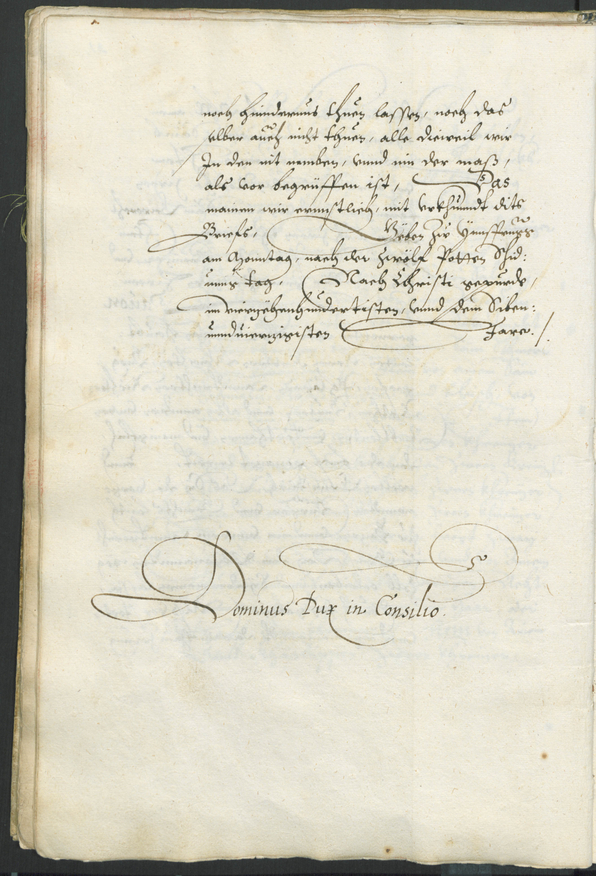 noch hindernus thuen lassen, noch das
selber auch nicht thuen, alle dieweil wir
In den nit nemben, vnnd inn der maß,
als vor begrüffen ist, Das
mainen wir ernnstlich, mit vrkhundt dits
Briefs, Geben zu Ynnsprugg
am Monntag, nach der zwölf Potten Schid:
unng tag, Nach Christi gepurde,
im vierzehenhundertisten, vnnd dem Siben:
unnduierzigisten Jare ./.
Dominus Dux in Consilio.